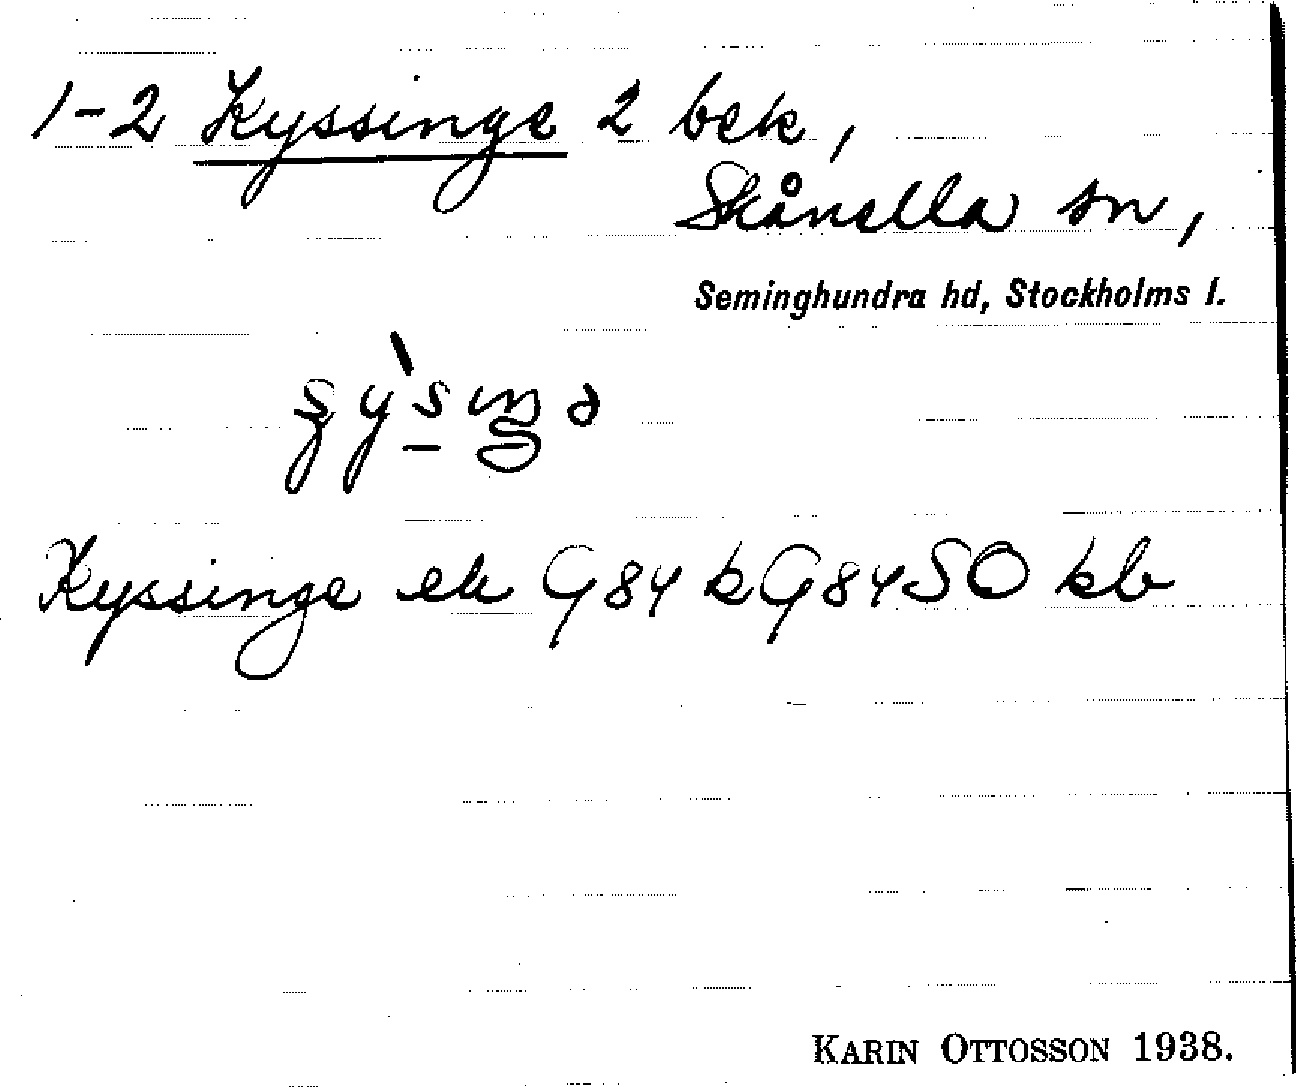 1-2 Kyssinge 2 bek,
Skånella sn,
Seminghundra hd, Stockholms l.
Kyssinge ek G84 k G84 SO kb
KARIN OTTOSSON 1938.